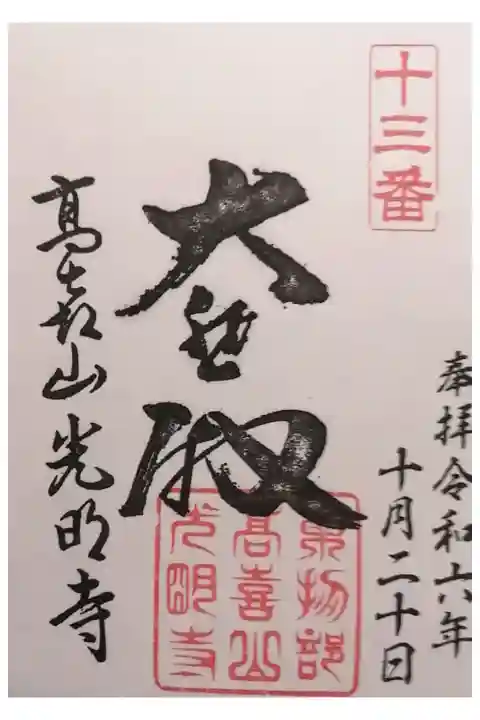 十三番
奉拝令和六年
十月二十日
大悲殿
髙㐂山光明寺
東物部
髙喜山
光明寺